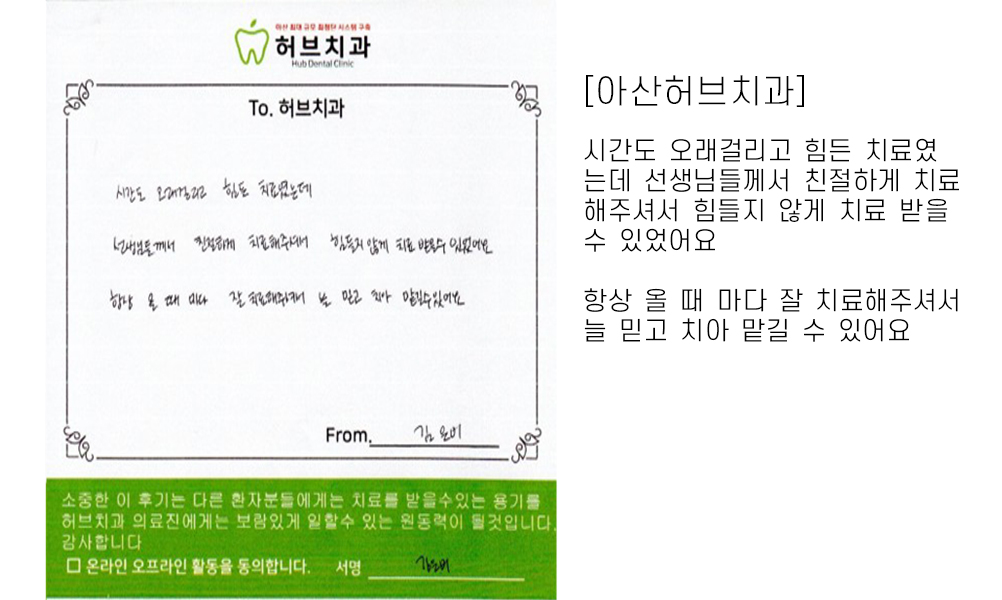 아산 최대 규모 최첨단 시스템 구축
허브치과
Hub Dental Clinic
To. 허브치과
시간도 오래걸리고 힘든 치료였는데
선생님들께서 친절하게 치료해주셔서 힘들지 않게 치료 받을수 있었어요
항상 올 때 마다 잘 치료해주셔서 늘 믿고 치아 맡길수있어요
From. 김
소중한 이 후기는 다른 환자분들에게는 치료를 받을수있는 용기를
허브치과 의료진에게는 보람있게 일할수 있는 원동력이 될것입니다.
감사합니다
☐ 온라인 오프라인 활동을 동의합니다. 서명
[아산허브치과]
시간도 오래걸리고 힘든 치료였
는데 선생님들께서 친절하게 치료
해주셔서 힘들지 않게 치료 받을
수 있었어요
항상 올 때 마다 잘 치료해주셔서
늘 믿고 치아 맡길 수 있어요